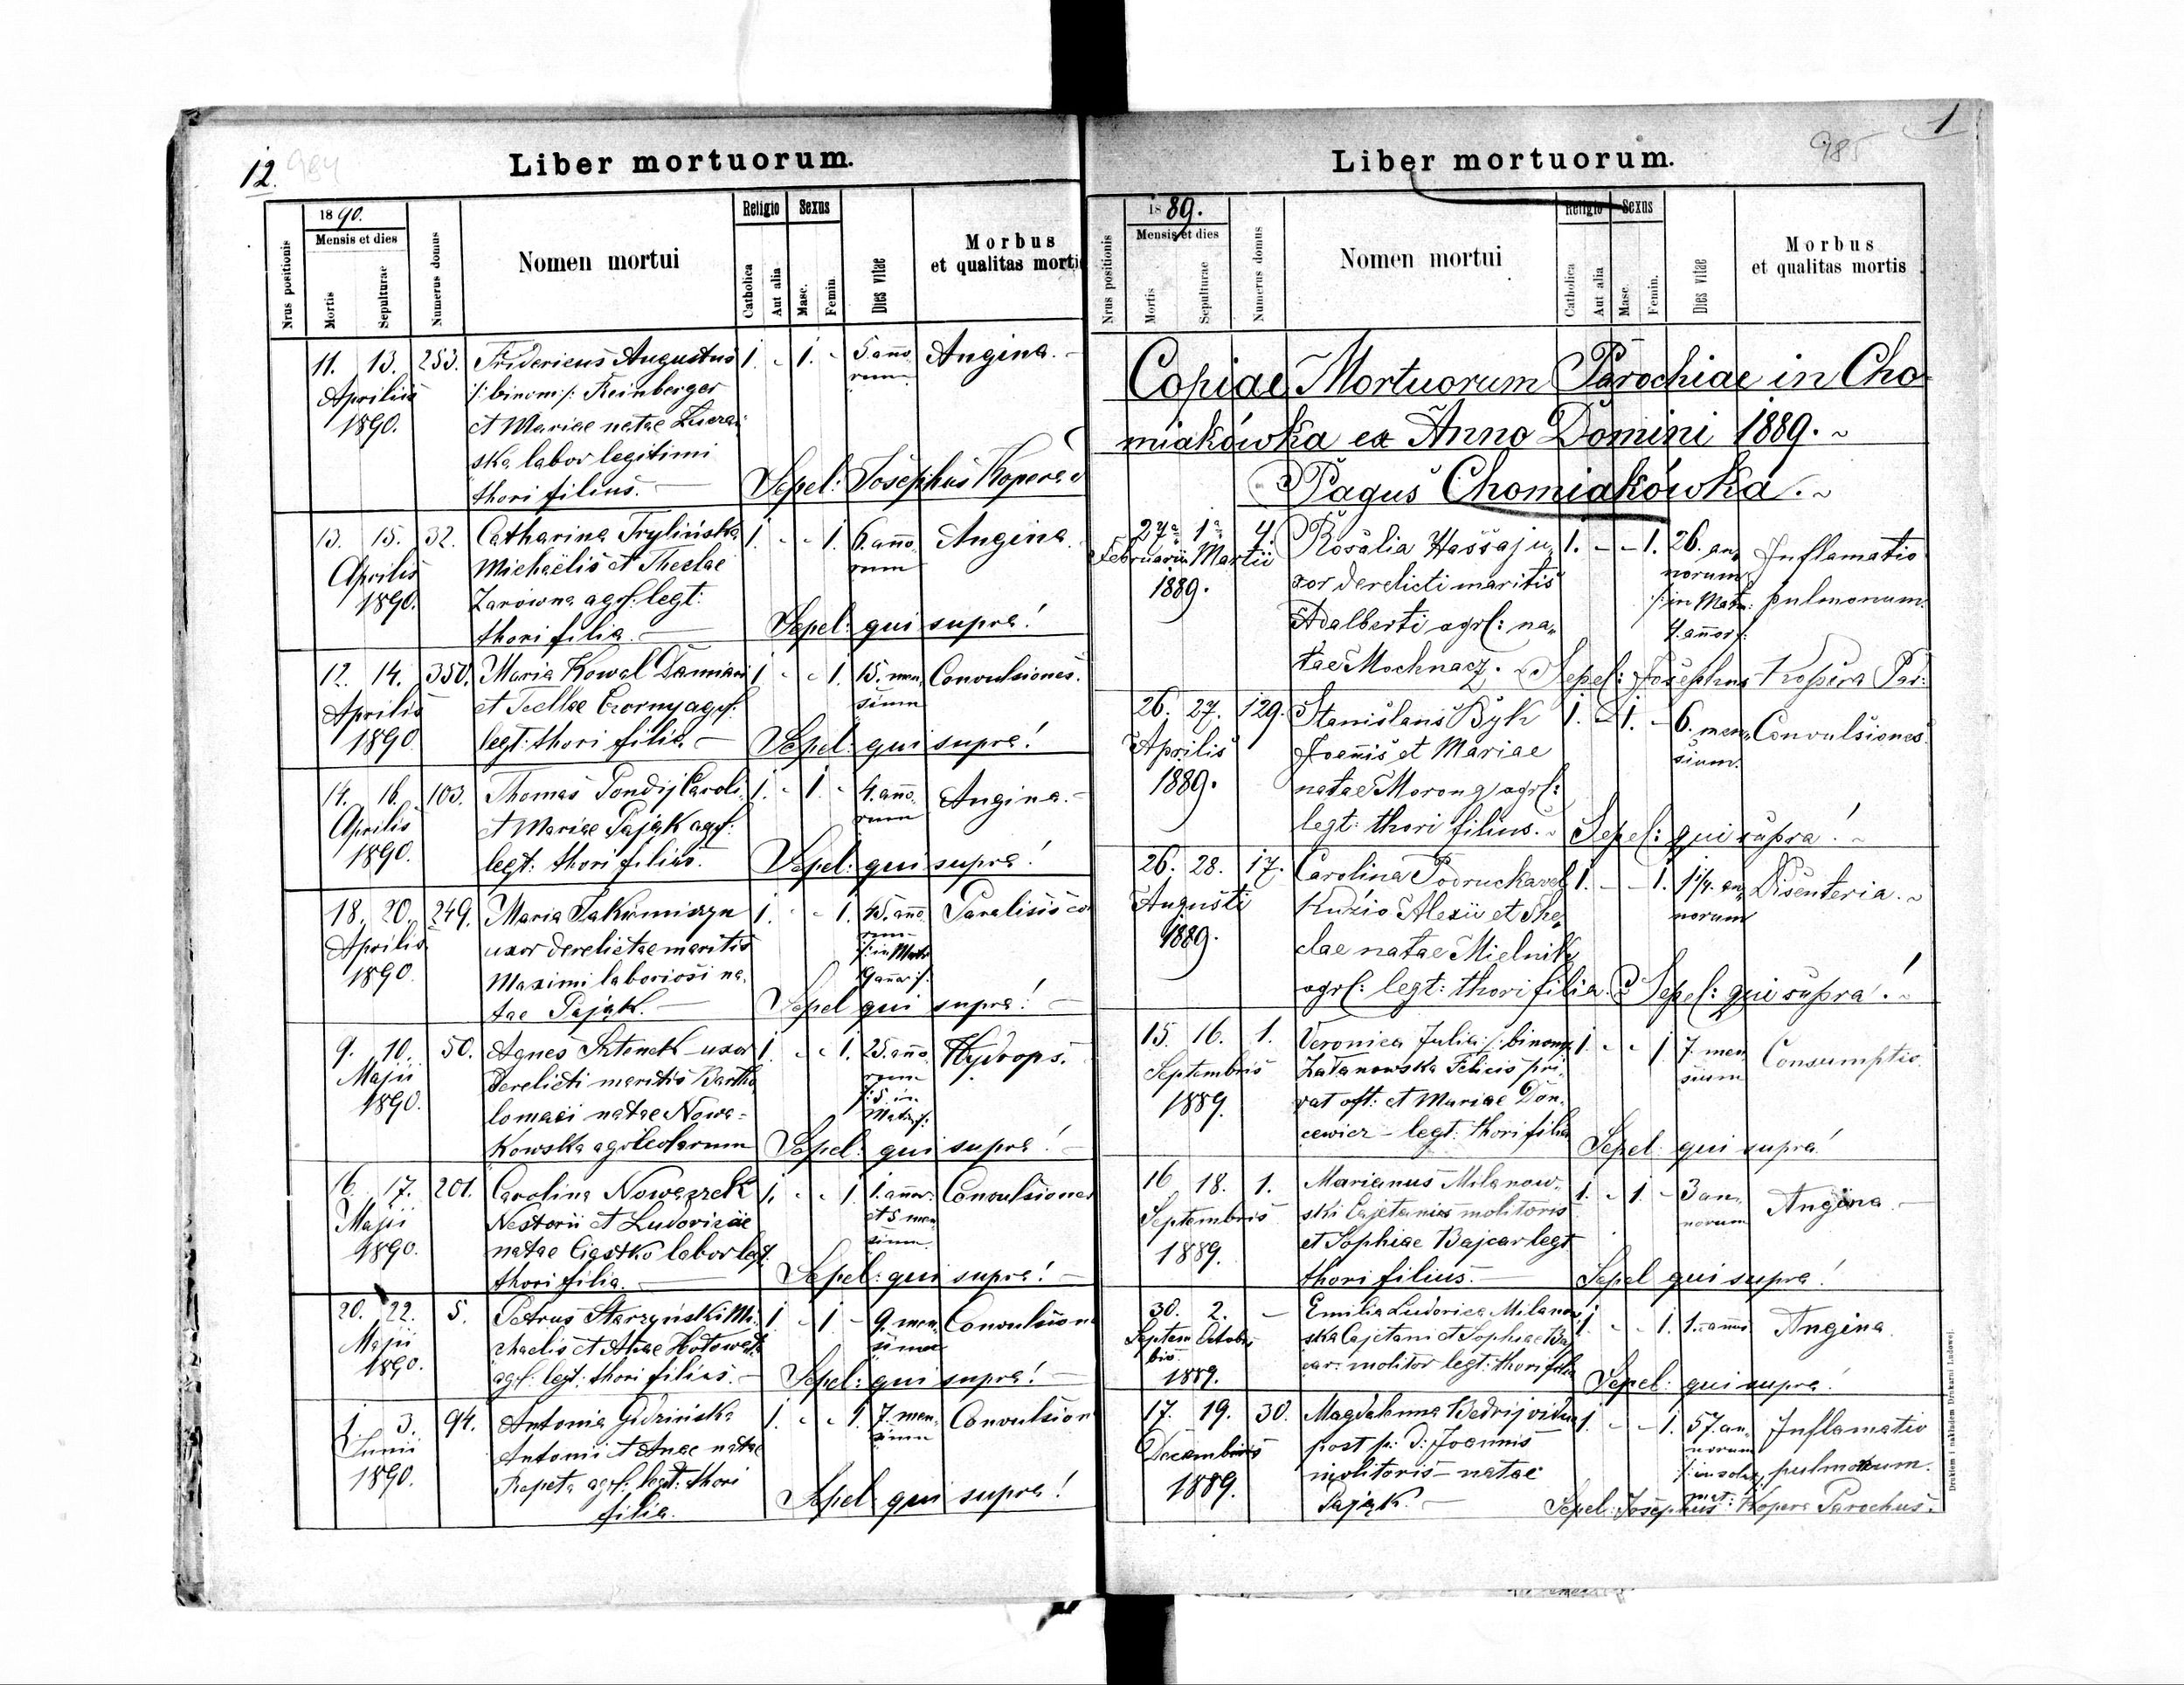 12. 984
Liber mortuorum.
Nrus positionis
1890.
Mensis et dies
Mortis
Sepulturae
Numerus domus
Nomen mortui
Religio
Catholica
Aut alia
Sexus
Masc.
Femin.
Dies vitae
Morbus
et qualitas mortis
11. 13. 253. Fridericus Augustus 1. - 1. - 5 anno Angina. -
Aprilis /: binom :/ Reinberger rum
1890. et Mariae natae
ska labor legitimi
thori filius. - Sepel: Josephus Kopera
13. 15. 32. Catharina Trylińska 1. - - 1. 6. anno Angina.
Aprilis Michaëlis et Theclae rum
1890. Zarowna agrl: legt:
thori filia. - Sepel: qui supra!
12. 14. 350. Maria Kowal Damiani 1. - - 1. 15. men Convulsiones.
Aprilis et Teclae Czorny agrl: sium
1890 legt: thori filia. - Sepel: qui supra!
14. 16. 103. Thomas Pondij Caroli 1. - 1. - 4. anno Angina. -
Aprilis et Mariae Pająk agrl: rum
1890. legt: thori filius. Sepel: qui supra!
18. 20. 249. Maria 1. - - 1. 45. anno Paralisis
Aprilis uxor derelictae maritis rum
1890. Maximi laboriosi na /: in Matr:
tae Pająk. - Sepel qui supra! -
9. 10. 50. Agnes uxor 1. - - 1. 25. anno Hydrops.
Majii derelicti maritis Bartho rum
1890. lomaei natae Nowa= /: 5. in
kowska agricolarum Matr:/ Sepel: qui supra! -
16. 17. 201. Carolina Nowazrek 1. - - 1. 1. annor: Convulsiones
Majii Nestorii et Ludovicae et 5 men
1890. natae Ciestko labor legt: sium
thori filia. - Sepel: qui supra! -
20. 22. 5. Petrus Starzyński Mi 1 - 1 - 9. men Convulsion
Majii chaelis et Anae sium
1890. agrl: legt: thori filius. - Sepel: qui supra! -
1. 3. 94. Antonia 1. - - 1. 7. men Convulsion
Junii Antonii et Anae natae sium
1890. Repeta agrl: legt: thori
filia. Sepel: qui supra!
1
985
Liber mortuorum.
Nrus positionis
1889.
Mensis et dies
Mortis
Sepulturae
Numerus domus
Nomen mortui
Religio
Catholica
Aut alia
Sexus
Masc.
Femin.
Dies vitae
Morbus
et qualitas mortis
Copiae Mortuorum Parochiae in Cho
miakówka ex Anno Domini 1889. ~
Pagus Chomiakówka. ~
27a 1a 4. Rosalia Hassaj u„ 1. - - 1. 26. an„ Inflamatio
Februarii Martii xor derelicti maritis norum pulmonum.
1889. Adalberti agrl: na„ /: in Matr: 4. annor:/
tae Mochnacz. ~ Sepel: Josephus Kopera Par:
26. 27. 129. Stanislaus Byk 1. - 1. - 6. men„ Convulsiones
Aprilis Joannis et Mariae sium.
1889. natae Morong agrl:
legt: thori filius. ~ Sepel: qui supra! ~
26. 28. 17. Carolina Podrucka vel 1. - - 1. 1 1/4. an„ Disenteria. ~
Augusti Kuźio Alexii et The„ norum
1889. clae natae Mielnik
agrl: legt: thori filia. Sepel: qui supra! ~
15. 16. 1. Veronica Julia /: binom 1. - - 1. 7. men Consumptio.
Septembris Felicis pri sium
1889. vat oft: et Mariae Don
cewicz - legt: thori filia Sepel qui supra!
16 18. 1. Marianus Milanow 1. - 1. - 3 an Angina -
Septembris ski Cajetani molitoris norum
1889. et Sophiae Bajcar legt
thori filius. - Sepel qui supra!
30. 2. - Emilia Ludovica Milanow 1 - - 1. 1. anni Angina
Septem Octobris ska Cajetani et Sophiae Baj
bis car: molitor legt: thori filia
1889. Sepel: qui supra!
17. 19. 30. Magdalenna Bedrij vidua 1. - - 1. 57. an Inflamatio
Decembris post p: d: Joannis norum pulmonum.
1889. molitoris - natae
Pająk. - Sepel: Josephus Kopera Parochus.
Drukiem i nakładem Drukarni Ludowej.